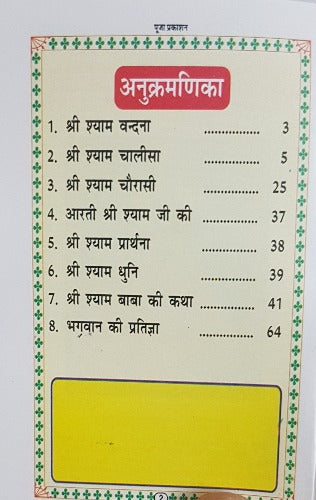 पूजा प्रकाशन
अनुक्रमणिका
1. श्री श्याम वन्दना ................ 3
2. श्री श्याम चालीसा ................ 5
3. श्री श्याम चौरासी ................ 25
4. आरती श्री श्याम जी की ................ 37
5. श्री श्याम प्रार्थना ................ 38
6. श्री श्याम धुनि ................ 39
7. श्री श्याम बाबा की कथा ................ 41
8. भगवान की प्रतिज्ञा ................ 64
2